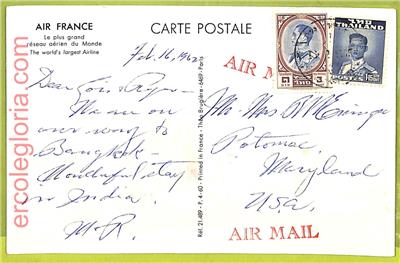 AIR FRANCE
Le plus grand
réseau aérien du Monde
The world's largest Airline
CARTE POSTALE
Feb. 16, 1962
AIR MAIL
THAILAND
POSTAGE
Dear Lois &
We are on
our way to
Bangkok -
Wonderful stay
in India.
M.R.
Mr. Mrs.
Potomac,
Maryland
U.S.A.
AIR MAIL
Réf. 21.489 - P. 4-60 - Printed in France - Théo Brugière - 6469 - Paris
ercolegloria.com